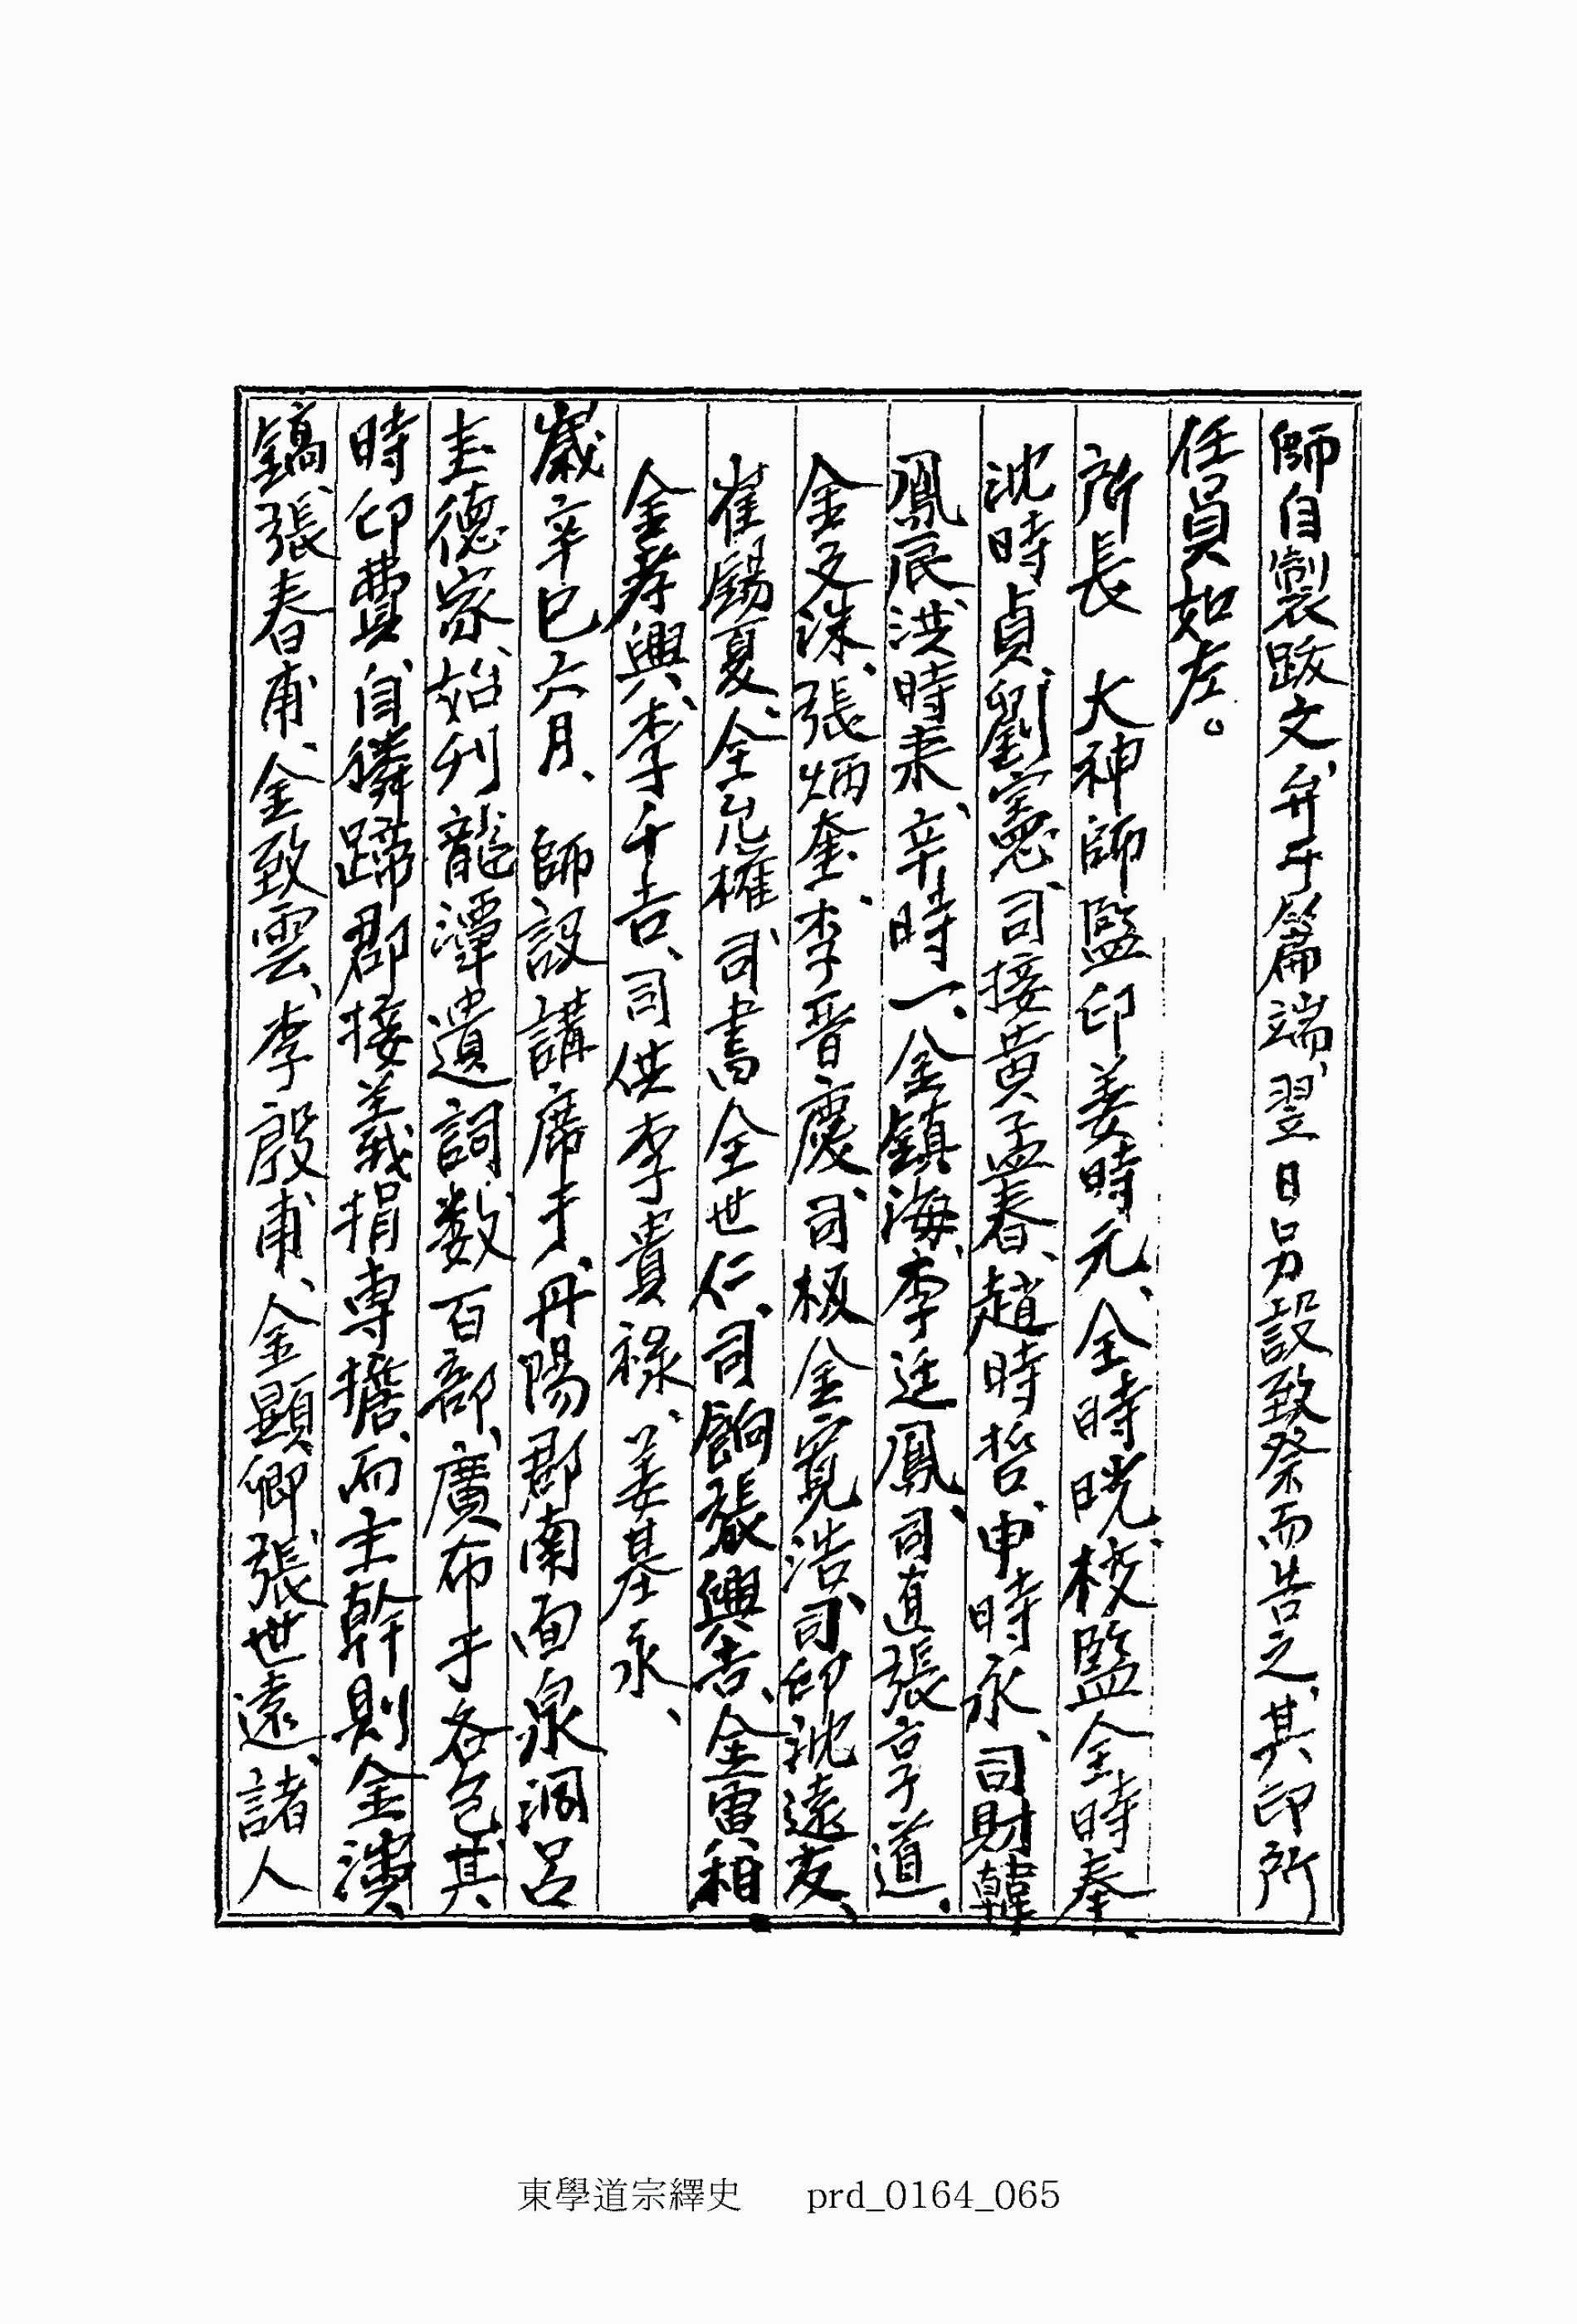 師自製跋文、弁于篇端、翌日另設致祭而告之、其印所
任員如左。
所長 大神師監印姜時元、全時晄、校監全時奉、
沈時貞、劉寅、司接黃孟春、趙時哲、申時永、司財韓
鳳辰、洪時來、辛時一、金鎮海、李廷鳳、司直張亨道、
金文洙、張炳奎、李晋慶、司板金寬浩、司印沈遠友、
崔錫夏、全允權、司書全世仁、司餉張興吉、金寅相、
金孝興、李千吉、司供李貴祿、姜基永、
歲辛巳六月、 師設講席于、丹陽郡南面泉洞呂
圭德家、始刊龍潭遺詞数百部、廣布于各包、其
時印費、自獜蹄郡接義捐専擔、而主幹則金演、
鎬、張春甫、金致雲、李殷甫、金顯卿、張世遠、諸人
東學道宗繹史 prd_0164_065